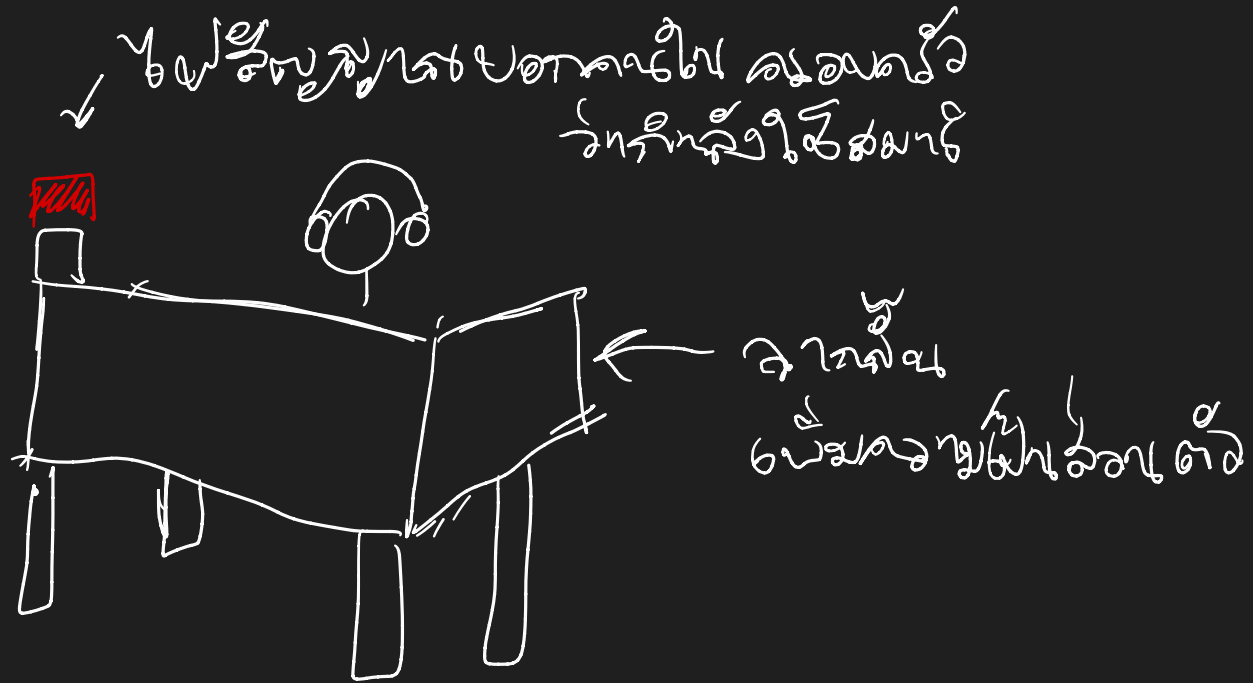 ไฟสัญญาณบอกคนในครอบครัว
ว่ากำลังใช้สมาธิ
ฉากกั้น
เพิ่มความเป็นส่วนตัว